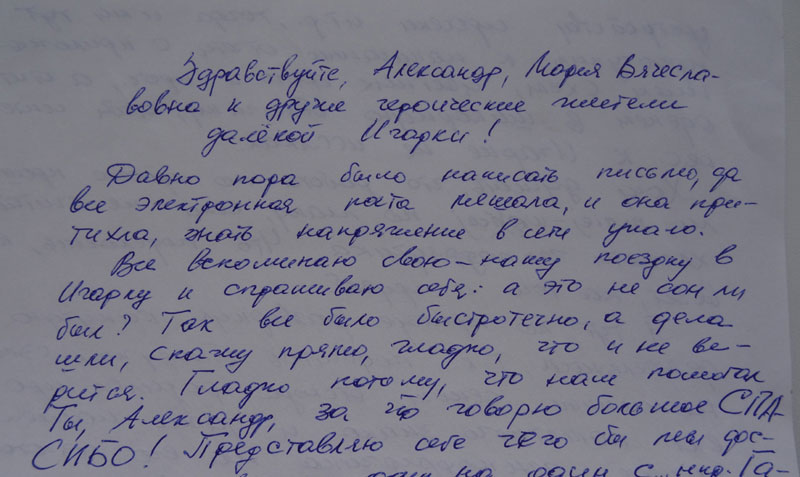 Здравствуйте, Александр, Мария Вячесла-
вовна и другие героические жители
далёкой Игарки!
Давно пора было написать письмо, да
все электронная почта мешала, и она при-
тихла, знать напряжение в сети упало.
Все вспоминаю свою-нашу поездку в
Игарку и спрашиваю себя: а это не сон ли
был? Так все было быстротечно, а дела
шли, скажу прямо, гладко, что и не ве-
рится. Гладко потому, что нам помогал
Ты, Александр, за что говорю большое СПА-
СИБО! Представляю себе чего бы мы дос-
один на один с